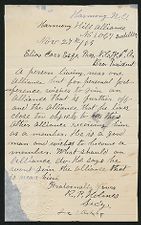 Harmony N.C.
Harmony Hill Alliance
No 2064
Nov 28th/88
Elias Carr Esqr. Pres. N.C.F.S.A.
Dear President
A person living near our
alliance, but for personal pref-
erence wishes to join an
Alliance that is further off
and the Alliance that he lives
close too objects to the
other alliance receiving him
as a member. He is a good
man and wishes to become a
member. What should an
alliance do. he says he
wont join the alliance that
is near him
Fraternally yours
Secty